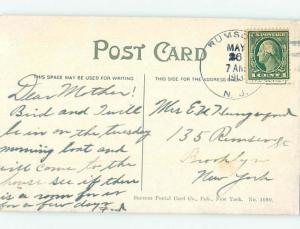 POST CARD
RUMSON
MAY
26
7 AM
191
N. J.
THIS SPACE MAY BE USED FOR WRITING
THIS SIDE FOR THE ADDRESS
Dear Mother!
Bird and I will
be in on the tuesday
morning boat and
will come to the
house see if there
is a room for us
for a few days
Mrs E H Hungerford
135 Remsen St
Brooklyn
New York
Success Postal Card Co., Pub., New York. No. 1090.